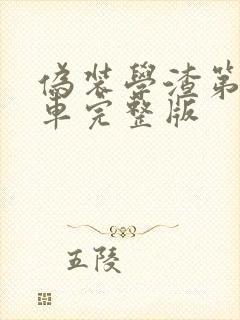 偽裝學渣第
車完整版
五陵